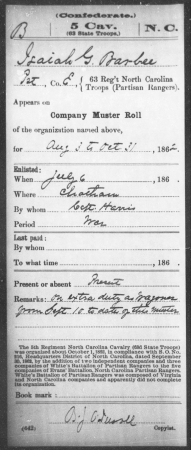 (Confederate.)
B 5 Cav. N. C.
(63 State Troops.)
Isaiah G. Barbee
Pvt, Co. E, 63 Reg't North Carolina
Troops (Partisan Rangers).
Appears on
Company Muster Roll
of the organization named above,
for Aug 3 to Oct 31, 1862
Enlisted:
When July 6, 186 .
Where Chatham
By whom Harris
Period War
Last paid:
By whom
To what time , 186 .
Present or absent Present
Remarks: On Extra duty as Wagoner
from Sept 10 to date of this Muster
The 5th Regiment North Carolina Cavalry (63d State Troops)
was organized about October 1, 1862, in compliance with S. O. No.
Headquarters District of North Carolina, dated September
30, 1862, by the addition of two independent companies and three
companies of White's Battalion of Partisan Rangers to the five
companies of Evans' Battalion, North Carolina Partisan Rangers.
White's Battalion of Partisan Rangers was composed of Virginia
and North Carolina companies and apparently did not complete
its organization.
Book mark:
(642)
Copyist.